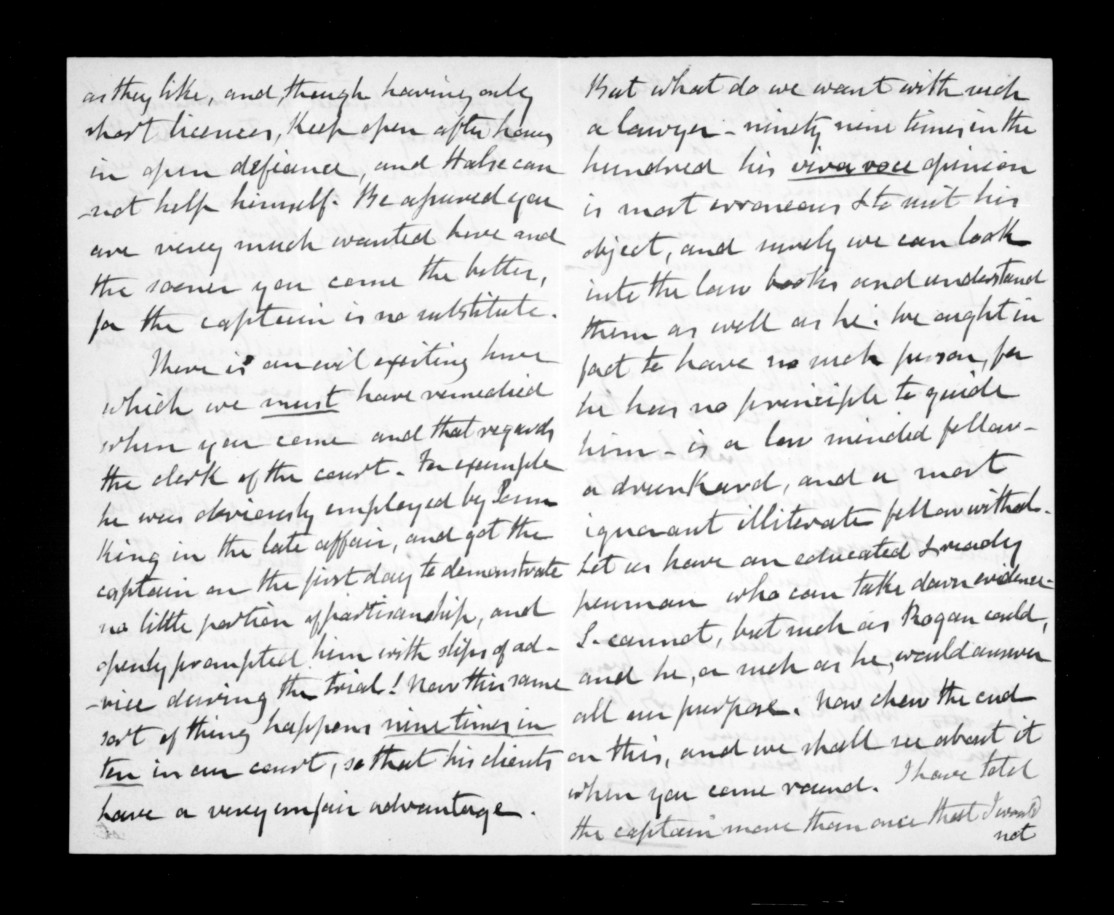 as they like, and though having only
short licences, keep open after hours
in open defiance, and Halse can
-not help himself. Be assured you
are very much wanted here and
the sooner you come the better,
for the captain is no substitute.
There is an evil existing here
which we must have remedied
when you come and that regards
the clerk of the court - For example
he was obviously employed by
King in the late affair, and got the
captain on the first day to demonstrate
no little portion of partisanship, and
openly prompted him with slips of ad-
-vice during the trial! Now this same
sort of thing happens nine times in
ten in our court, so that his clients
have a very unfair advantage.
But what do we want with such
a lawyer - ninety nine times in the
hundred his viva voce opinion
is most erroneous & to suit his
object, and surely we can look
into the law books and understand
them as well as he. We ought in
fact to have no such person, for
he has no principle to guide
him - is a low minded fellow -
a drunkard, and a most
ignorant illiterate fellow withal.
Let us have an educated & ready
penman who can take down evidence -
I cannot, but such as Rogan could,
and he, or such as he, would answer
all our purpose. Now chew the cud
on this, and we shall see about it
when you come round. I have told
the captain more than once that I would
not